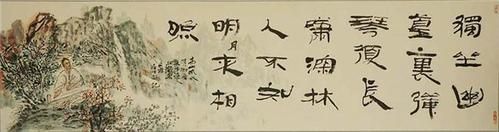 獨坐幽
篁裏彈
琴復長
嘯深林
人不知
明月來相
照